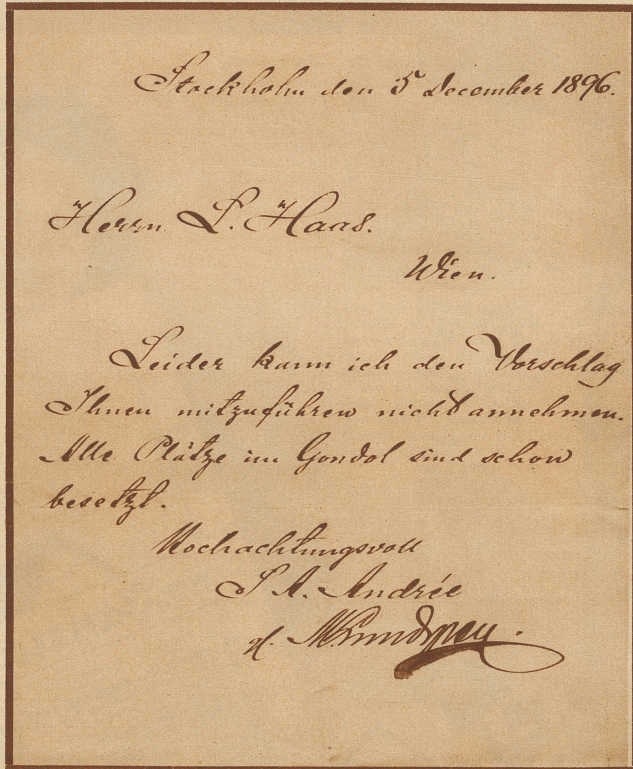 Stockholm den 5 December 1896.
Herrn L. Haas.
Wien.
Leider kann ich den Vorschlag
Ihnen mitzuführen nicht annehmen.
Alle Plätze im Gondol sind schon
besetzt.
Hochachtungsvoll
S. A. Andrée